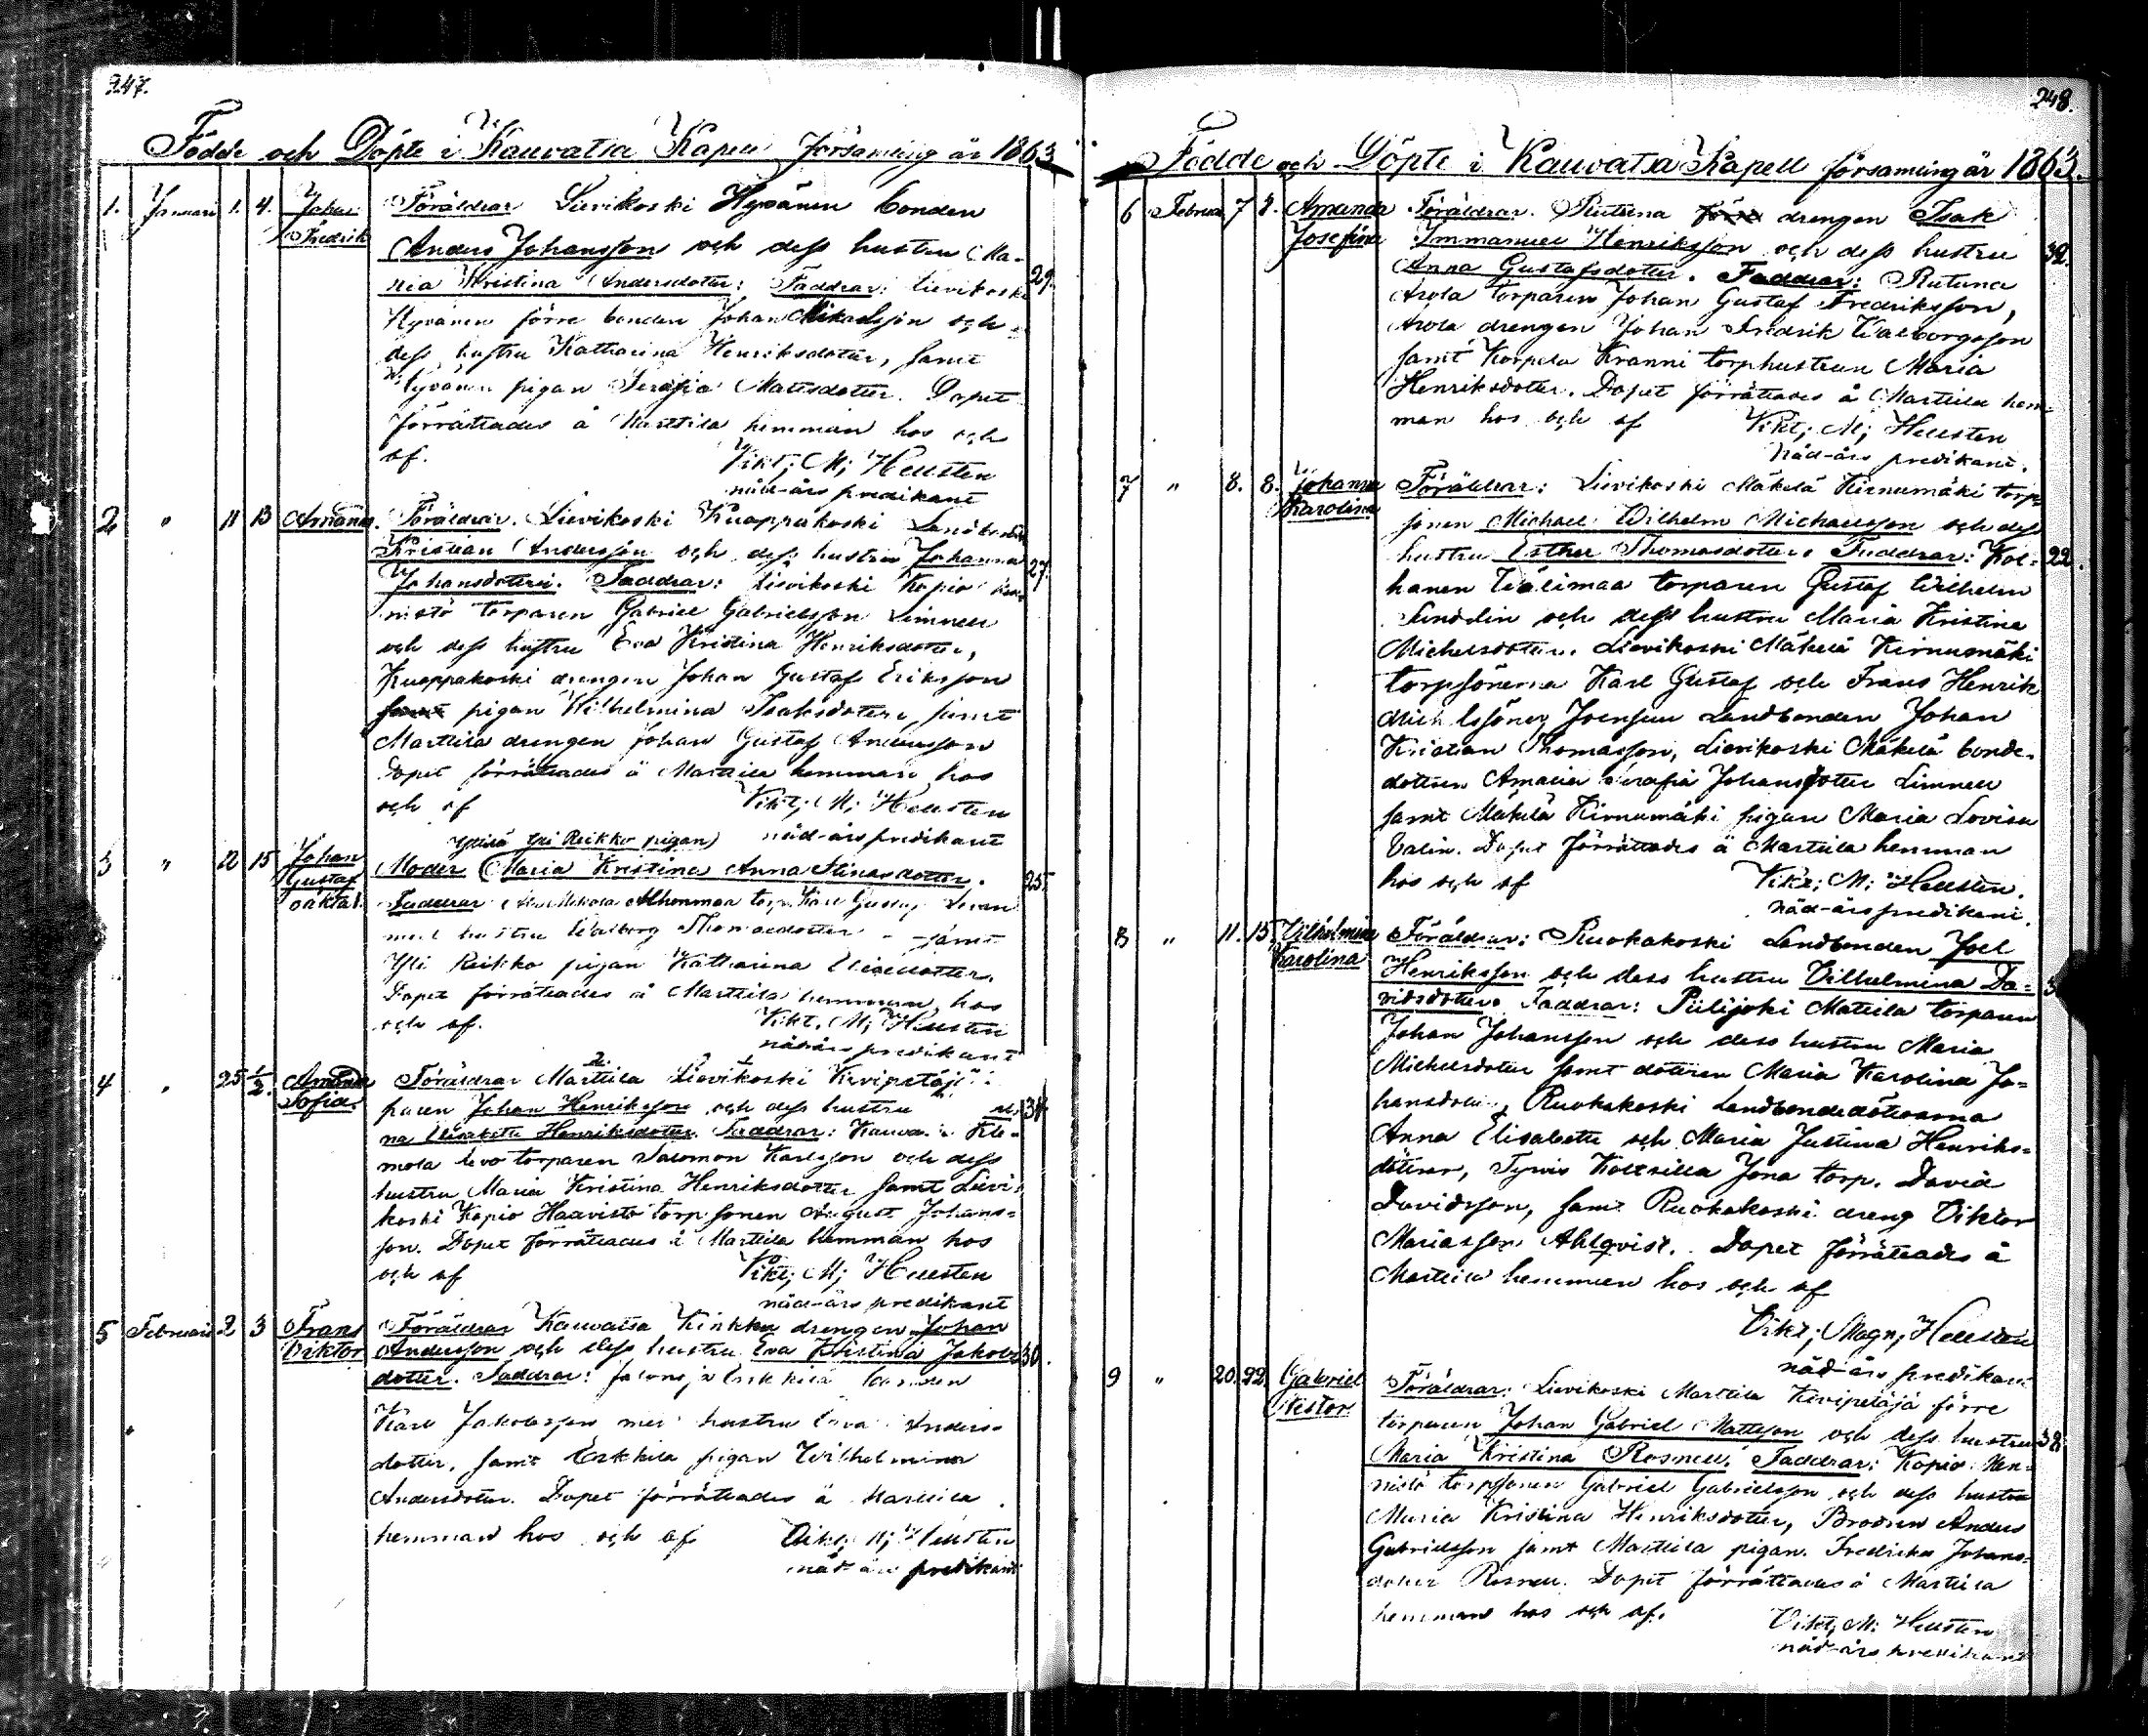 247.
Födde och Döpte i Kauvatsa Kapell församling år 1863
1. Januari 1. 4. Johan Fredrik
Föräldrar Lievikoski Hyvänen bonden
Anders Johansson och dess hustru Ma-
ria Kristina Andersdotter: Faddrar: Lievikoski 29.
Hyvänen förre bonden Johan Mikaelsson och
dess hustru Katharina Henriksdotter, samt
Hyvänen pigan Serafia Mattsdotter. Dopet
förrättades å Marttila hemman hos och
af. Vikt; M; Hellsten
nåd-års predikant
2 " 11 13 Amanda.
Föräldrar. Lievikoski Kuoppakoski Landbonden
Kristian Andersson och dess hustru Johanna 27.
Johansdotter. Faddrar: Lievikoski Kopio
nistö torparen Gabriel Gabrielsson Limnell
och dess hustru Eva Kristina Henriksdotter,
Kuoppakoski drengen Johan Gustaf Eriksson
samt pigan Wilhelmina Isaksdotter, samt
Marttila drengen Johan Gustaf Andersson
Dopet förrättades å Marttila hemman hos
och af Vikt; M; Hellsten
nåd-års predikant
Yli Reikko pigan
3 " 12 15 Johan Gustaf oäkta.
Moder Maria Kristina Anna Stinasdotter. 25.
Faddrar Alhonmaa torp. Karl Gustaf
med hustru Walborg Thomasdotter samt
Yli Reikko pigan Katharina Eliaedotter.
Dopet förrättades å Marttila hemman hos
och af. Vikt. M; Hellsten
nådårs predikant
4 " 25 1/2. Amanda Sofia.
Föräldrar Marttila Lievikoski Kivipetäjä
paren Johan Henriksson och dess hustru 34.
na Elisabeth Henriksdotter. Faddrar: Kauva. Kle-
mola Levo torparen Salomon Karlsson och dess
hustru Maria Kristina Henriksdotter samt Lievi-
koski Kopio Haavisto torpsonen August Johans-
son. Dopet förrättades å Marttila hemman hos
och af Vikt; M; Hellsten
nåd-års predikant
5 Februari 2 3 Frans Viktor
Föräldrar Kauvatsa Kinkku drengen Johan
Andersson och dess hustru Eva Kristina Jakobs 30.
dotter. Faddrar: Erkkilä bonden
Karl Jakobsson med hustru Eva Anders-
dotter, samt Erkkilä pigan Wilhelmina
Andersdotter. Dopet förrättades å Marttila
hemman hos och af Vikt; M; Hellsten
nåd-års predikant
248.
Födde och Döpte i Kauvatsa Kapell församling år 1863.
6 Februari 7 8. Amanda Josefina
Föräldrar. Rutuna förre drengen Isak
Immanuel Henriksson och dess hustru 32.
Anna Gustafsdotter. Faddrar: Rutuna
Arola torparen Johan Gustaf Fredriksson,
Arola drengen Johan Fredrik Walborgsson
samt Korpela Kranni torphustrun Maria
Henriksdotter. Dopet förrättades å Marttila hem-
man hos och af Vikt; M; Hellsten
Nåd-års predikant.
7 " 8. 8. Johanna Karolina
Föräldrar: Lievikoski Mäkelä Kirnumäki torp-
sonen Michael Wilhelm Michaelsson och dess
hustru Esther Thomasdotter. Faddrar: Kol- 22.
hanen Välimaa torparen Gustaf Wilhelm
Sundelin och dess hustru Maria Kristina
Michelsdotter. Lievikoski Mäkelä Kirnumäki
torpsönerna Karl Gustaf och Frans Henrik
Michelssöner, Joensuu Landbonden Johan
Kristian Thomasson, Lievikoski Mäkelä bonde-
dottren Amalia Serafia Johansdotter Limnell
samt Mäkelä Kirnumäki pigan Maria Lovisa
Valin. Dopet förrättades å Marttila hemman
hos och af Vikt; M; Hellsten.
nåd-års predikant.
8 " 11. 15. Vilhelmina Karolina
Föräldrar: Ruohakoski Landbonden Joel
Henriksson och dess hustru Vilhelmina Da-
vidsdotter. Faddrar: Piilijoki Mattila torparen
Johan Johansson och dess hustru Maria
Michelsdotter samt dottren Maria Karolina Jo-
hansdotter, Ruohakoski Landbondedöttrarna
Anna Elisabeth och Maria Justina Henriks-
döttrar, Tyrvis Koltsilla Jona torp. David
Davidsson, samt Ruohakoski dreng Viktor
Mariasson Ahlqvist. Dopet förrättades å
Marttila hemman hos och af
Vikt; Magn; Hellsten
nåd-års predikant
9 " 20. 22. Gabriel Nestor
Föräldrar: Lievikoski Marttila Kivipetäjä förre
torparen Johan Gabriel Mattsson och dess hustru 38.
Maria Kristina Rosnell. Faddrar: Kopio Hen-
nistö torpsonen Gabriel Gabrielsson och dess hustru
Maria Kristina Henriksdotter, Brodren Anders
Gabrielsson samt Marttila pigan Fredrika Johans-
dotter Rosnell. Dopet förrättades å Marttila
hemman hos och af. Vikt; M; Hellsten
nåd-års predikant